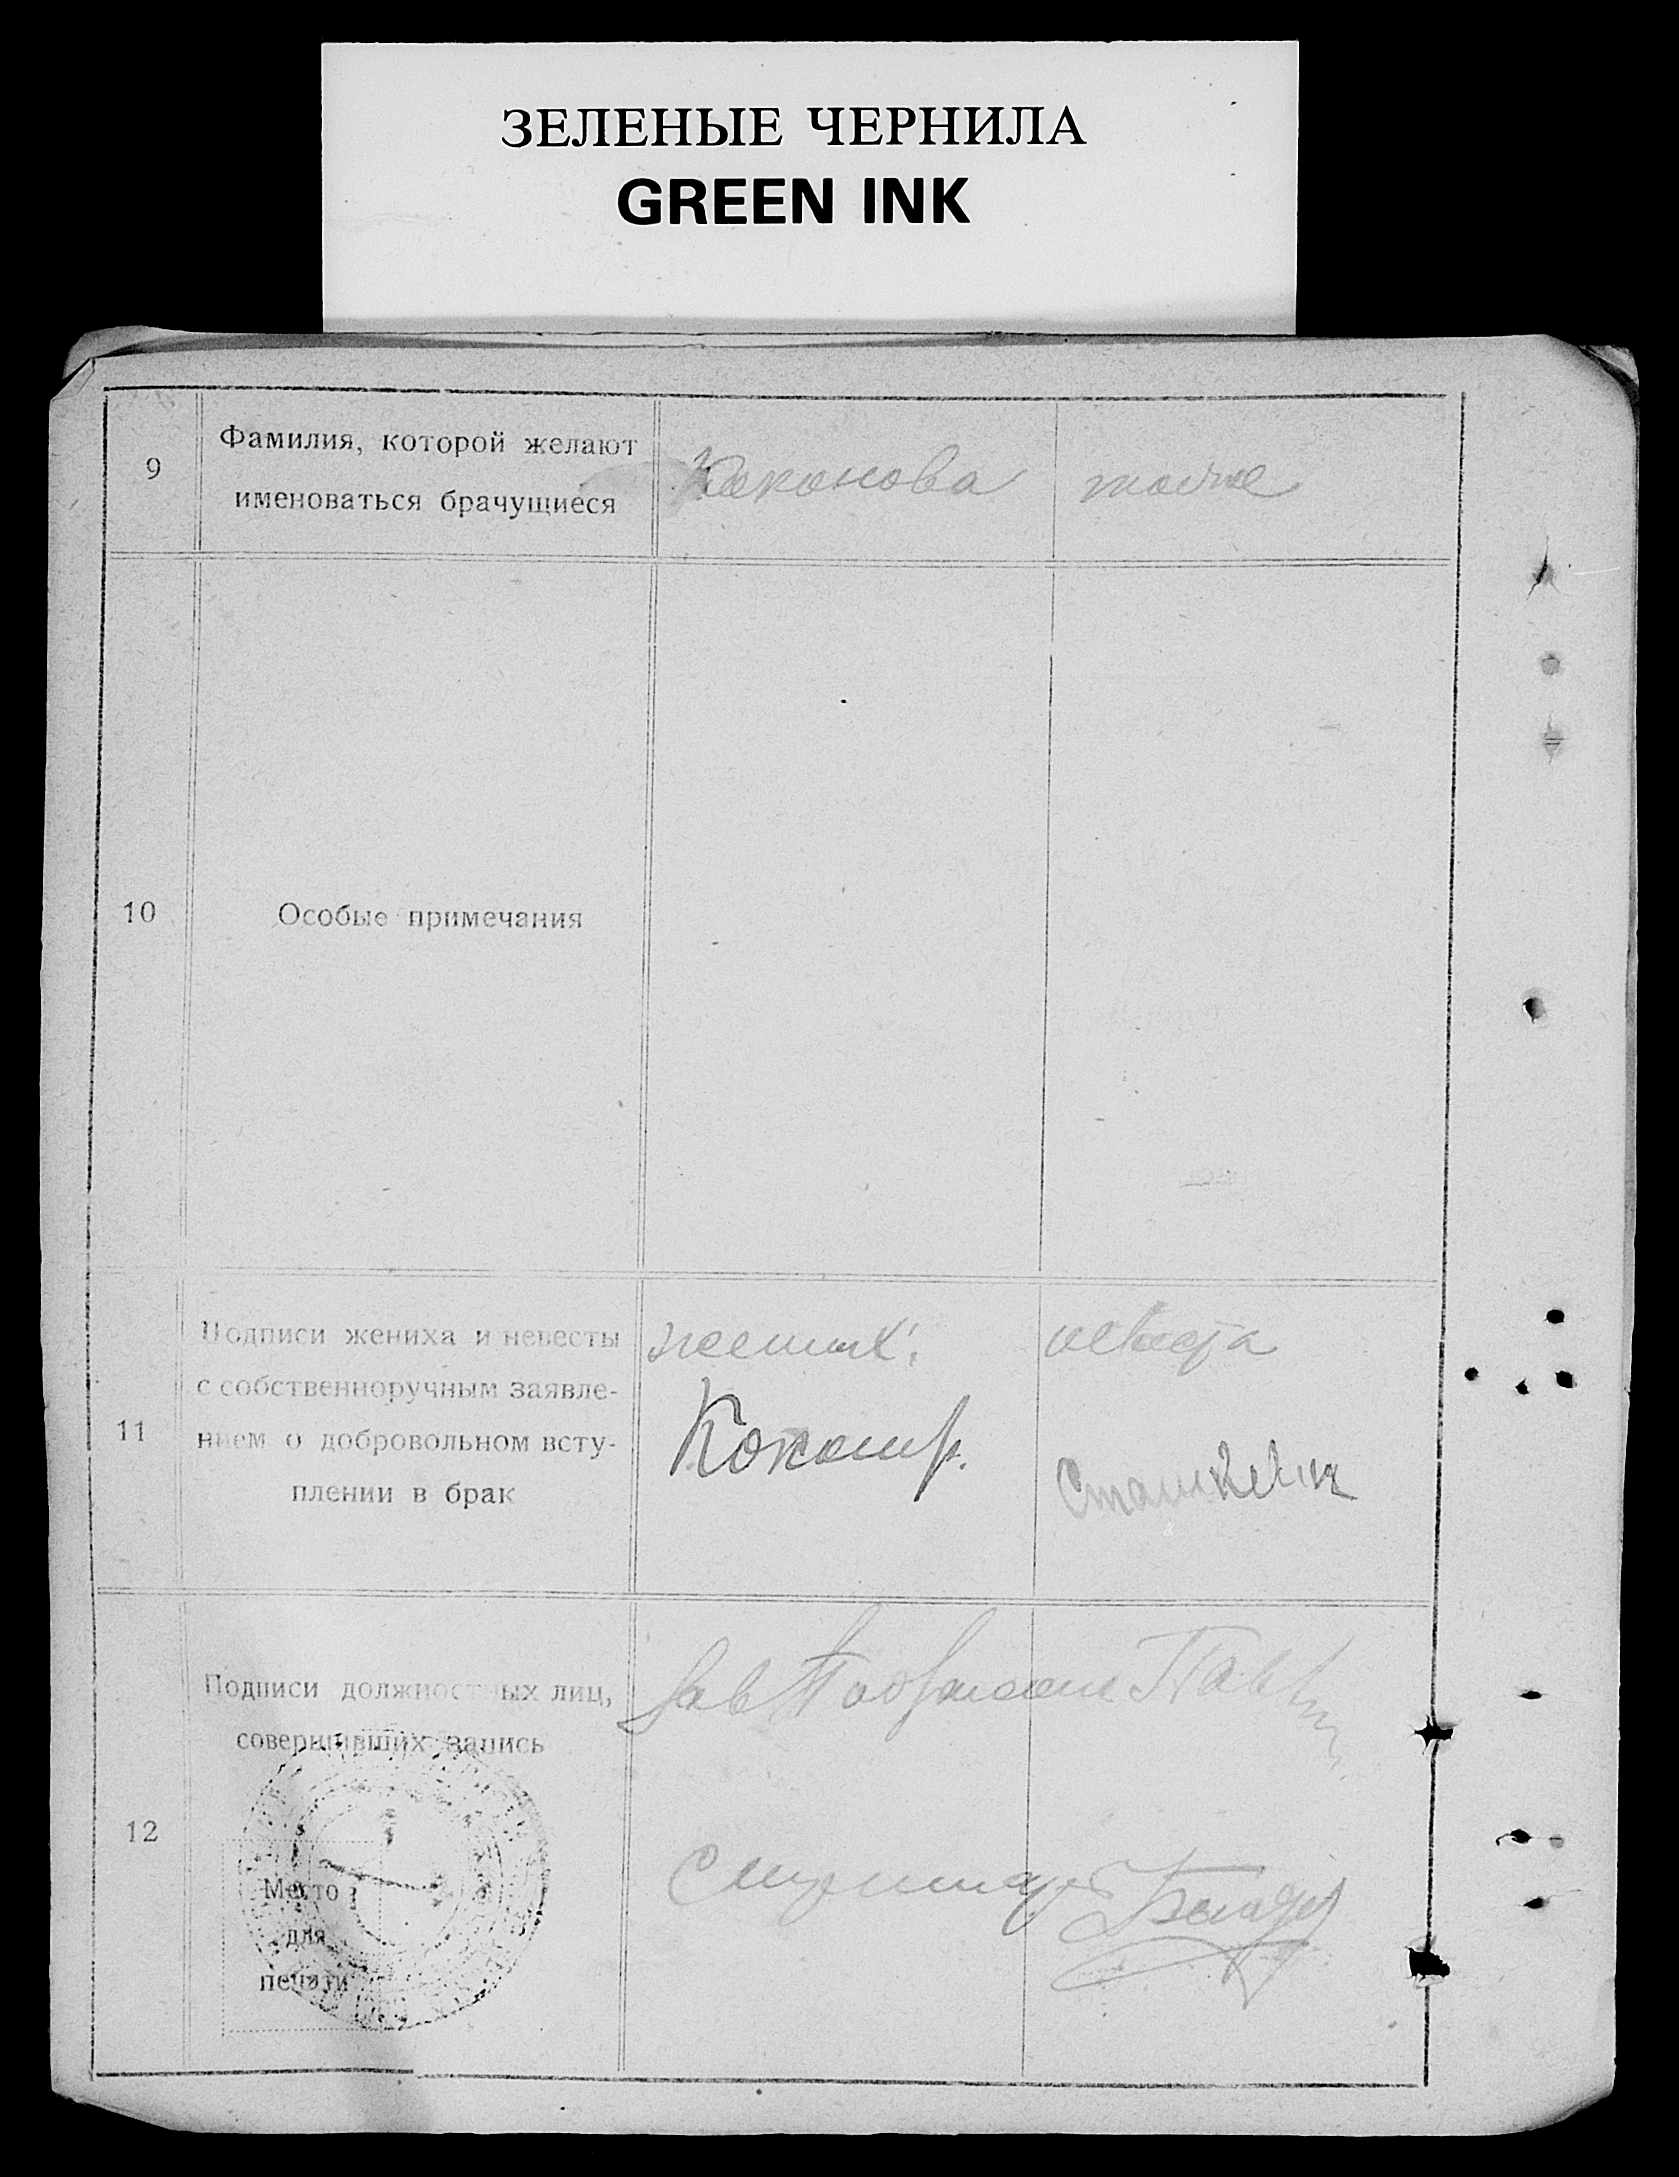 ЗЕЛЕНЫЕ ЧЕРНИЛА
GREEN INK
9
Фамилия, которой желают
именоваться брачущиеся
тоже
10
Особые примечания
11
Подписи жениха и невесты
с собственноручным заявле-
нием о добровольном всту-
плении в брак
жених:
невеста
Сташкевич
12
Подписи должностных лиц,
совершивших запись
Зав
Место
для
печати